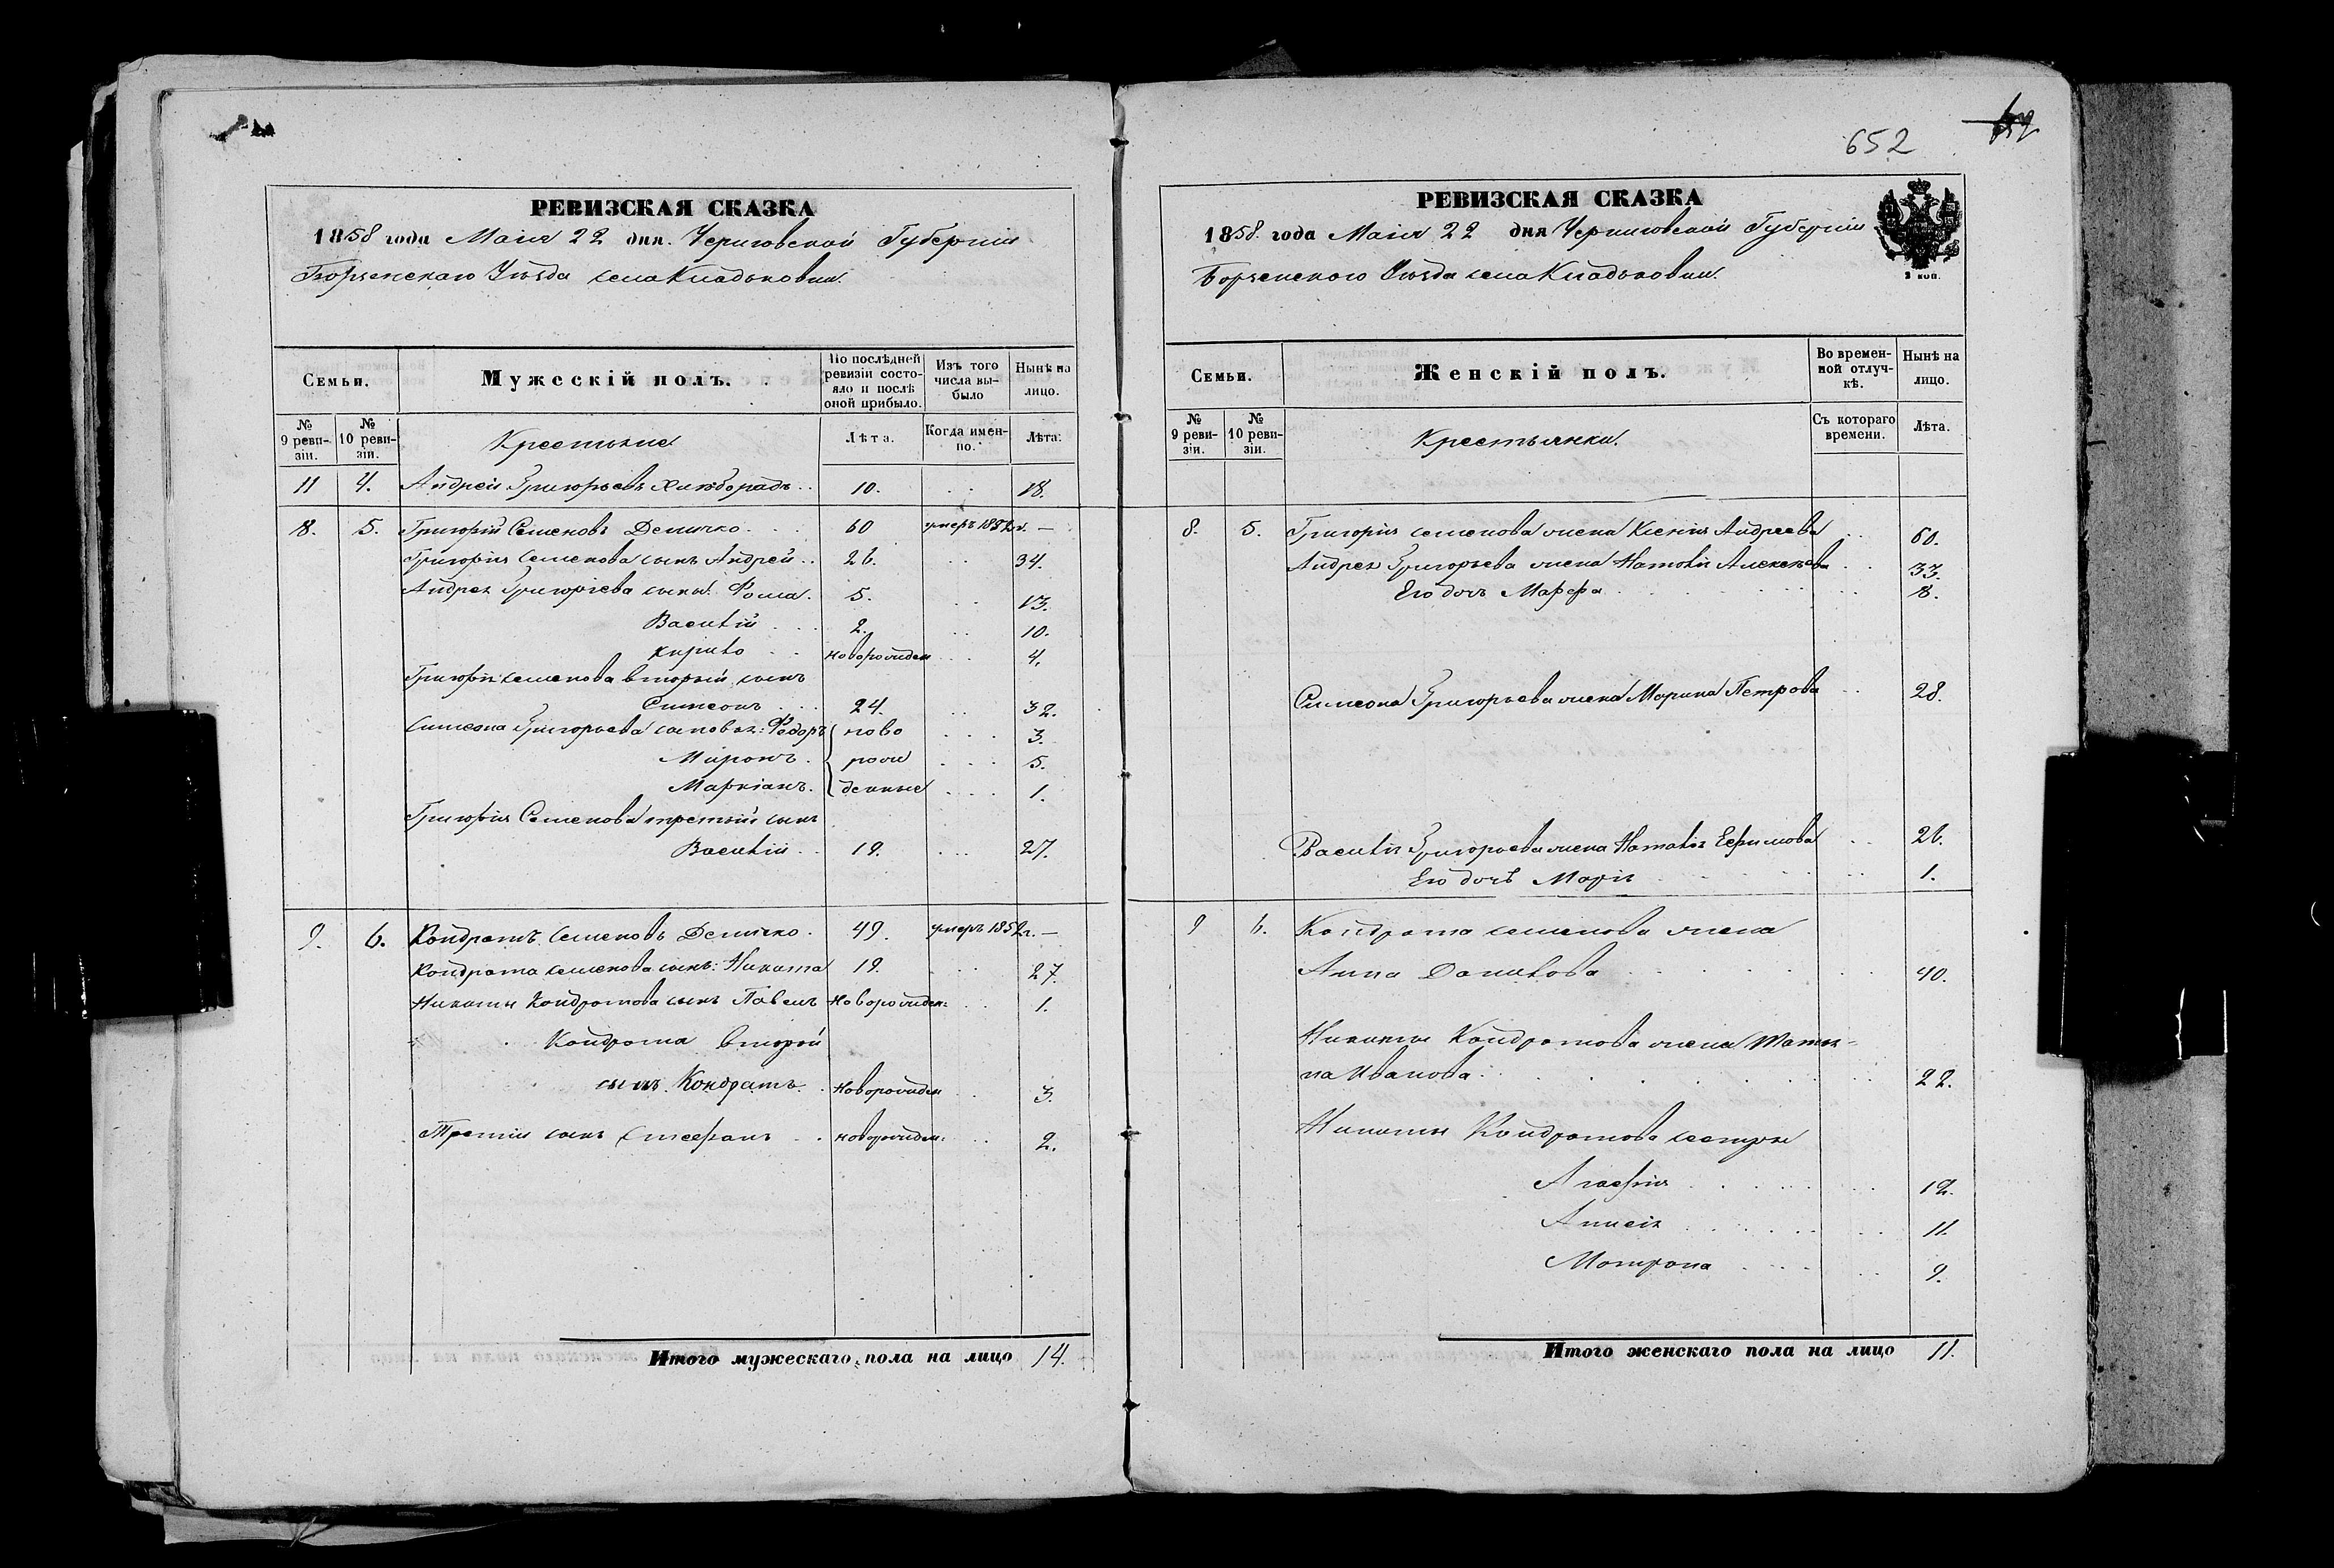 РЕВИЗСКАЯ СКАЗКА
1858 года Маія 22 дня. Черниговской Губерніи
Борзенскаго Уѣзда села Кладьковки.
Семьи.
Мужескій полъ.
По послѣдней ревизіи состояло и послѣ оной прибыло.
Изъ того числа выбыло
Нынѣ на лицо.
№ 9 ревизіи.
№ 10 ревизіи.
Крестьяне
Лѣта.
Когда именно.
Лѣта.
11 4. Андрей Григорьевъ 10. 18.
8. 5. Григорій Семеновъ Демичко 60 умеръ 1852г. —
Григорія Семенова сынъ Андрей 26. 34.
Андрея Григоріева сыны: Фома. 5. 13.
Василій 2. 10.
Кирило новорожден 4.
Григорія Семенова вторый сынъ
Симеонъ 24. 32.
Симеона Григорьева сыновья: Федоръ ново 3.
Миронъ. рож 5.
Маркіанъ. денные 1.
Григорія Семенова третій сынъ
Василій 19. 27.
9. 6. Кондратъ Семеновъ Демичко. 49. умеръ 1852г. —
Кондрата Семенова сынъ: Никита 19. 27.
Никиты Кондратова сынъ Павелъ Новорожден: 1.
Кондрата вторый
сынъ Кондратъ. Новорожден 3.
Третій сынъ Стефанъ новорожден: 2.
Итого мужескаго пола на лицо 14.
652
РЕВИЗСКАЯ СКАЗКА
1858 года Маія 22 дня Черниговской Губерніи
Борзенского Уѣзда села Кладьковки.
2 коп.
Семьи.
Женскій полъ.
Во временной отлучкѣ.
Нынѣ на лицо.
№ 9 ревизіи.
№ 10 ревизіи.
Крестьянки.
Съ котораго времени.
Лѣта.
8. 5. Григорія Семенова жена Ксенія Андреева 60.
Андрея Григорьева жена Наталія Алексѣева 33.
Его дочь Марфа 8.
Симеона Григорьева жена Марина Петрова 28.
Василія Григорьева жена Наталія Ефимова 26.
Его дочь Марія 1.
9 6. Кондрата Семенова жена
Анна Данилова 40.
Никиты Кондратова жена Татья-
на Иванова 22.
Никиты Кондратова сестры
Агафія 12.
Анисія 11.
Матрона 9.
Итого женскаго пола на лицо 11.